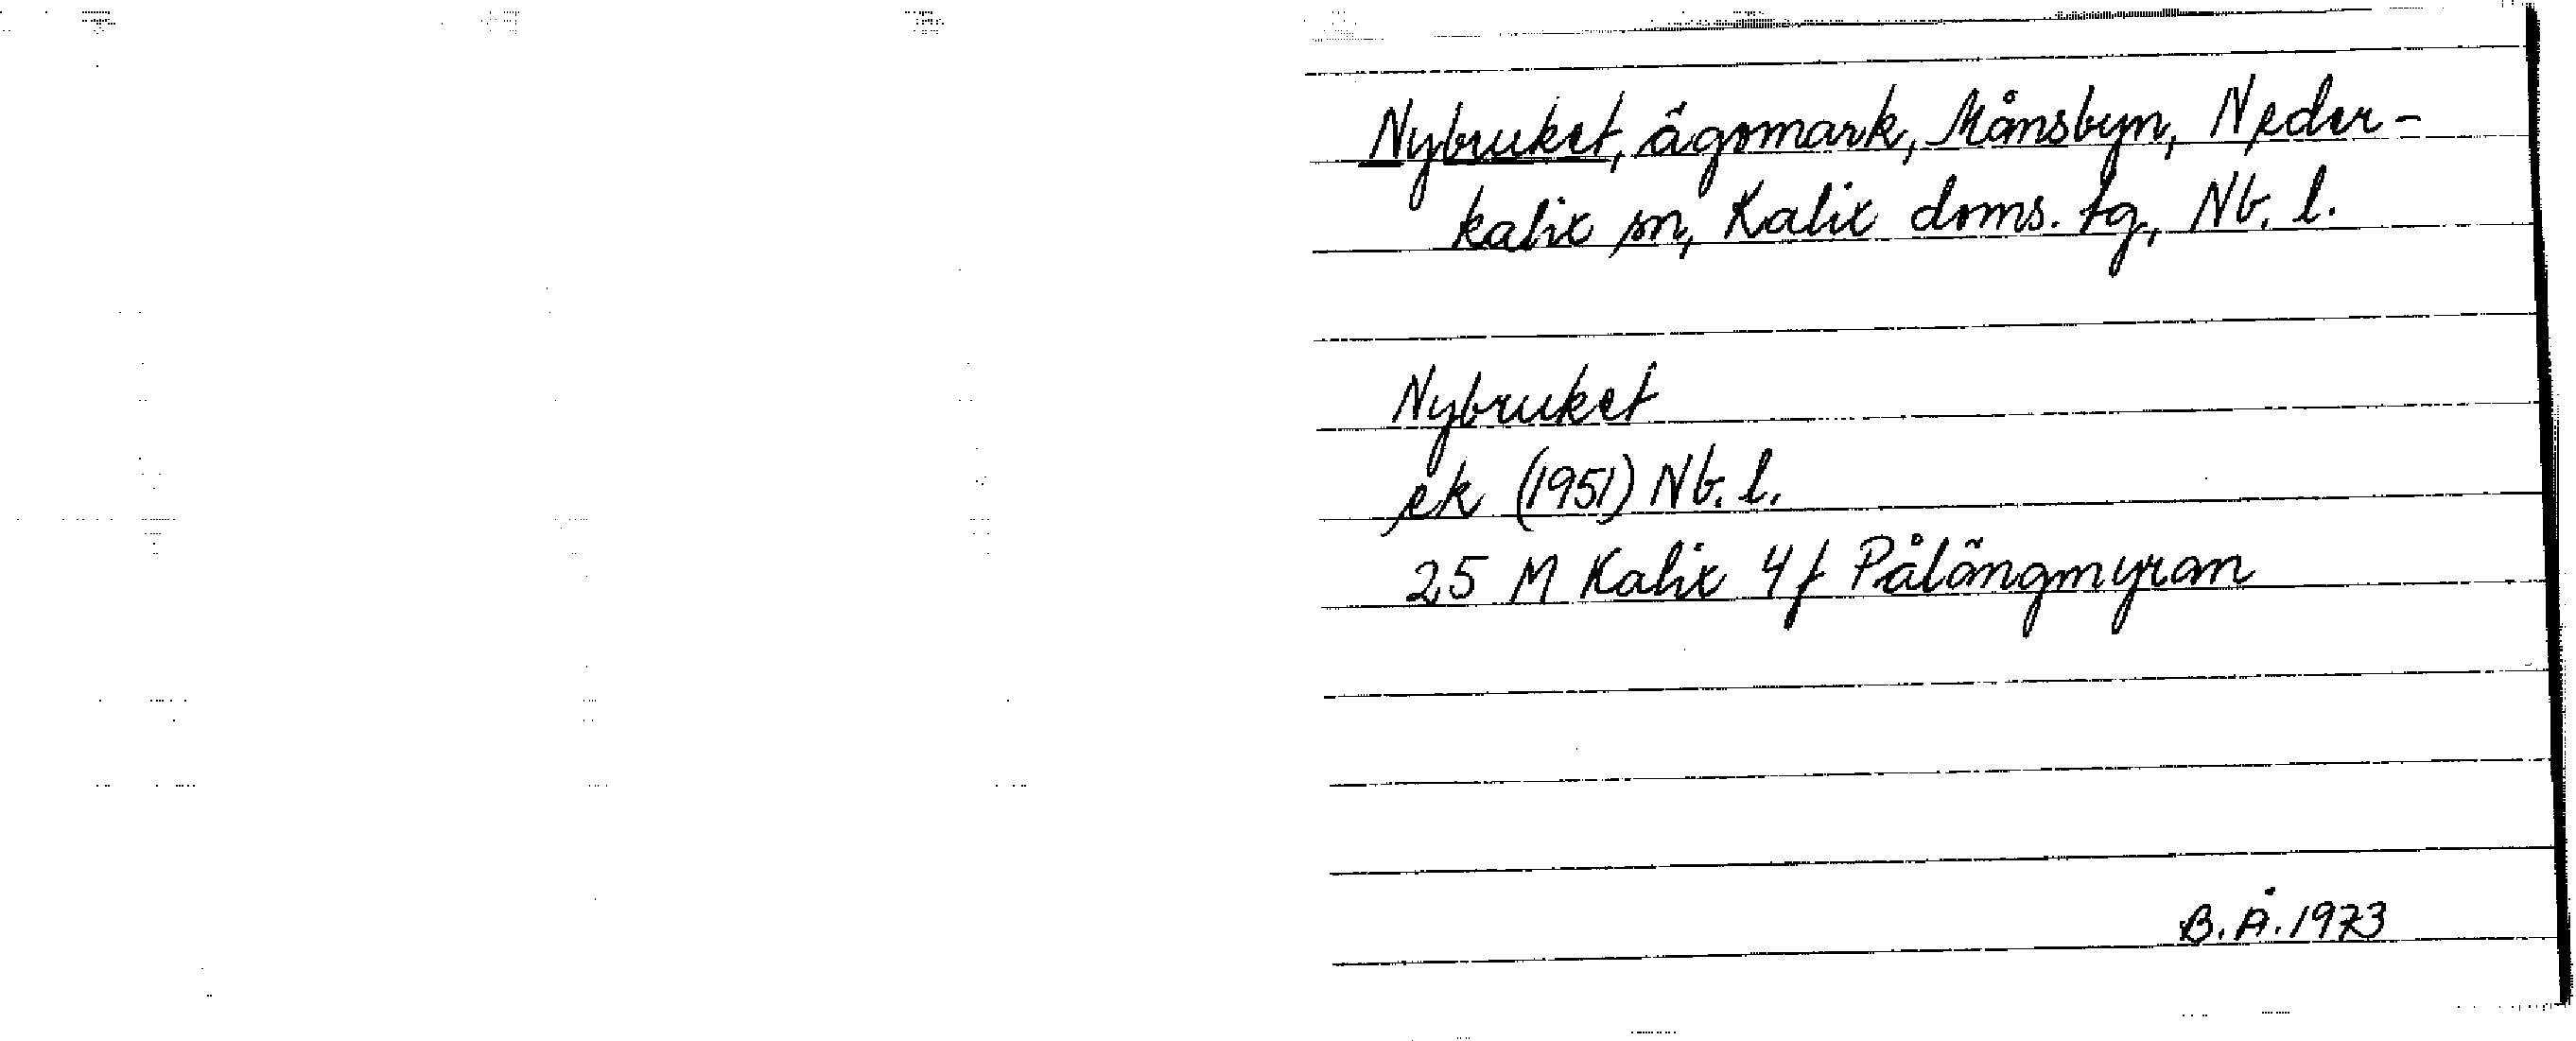 Nybruket, ägomark, Månsbyn, Neder-
kalix sn, Kalix doms. tg, Nb. l.
Nybruket
ek (1951) Nb. l.
25 M Kalix 4f Pålängmyran
B. Å. 1973